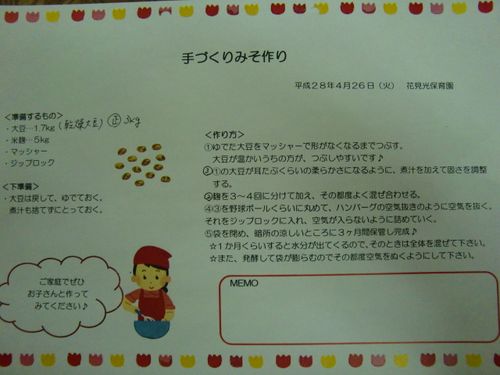 手づくりみそ作り
平成28年4月26日（火） 花見光保育園
＜準備するもの＞
・大豆…1.7kg(乾燥大豆) 3kg
・米麹…5kg
・マッシャー
・ジップロック
＜下準備＞
・大豆は戻して、ゆでておく。
煮汁も捨てずにとっておく。
＜作り方＞
①ゆでた大豆をマッシャーで形がなくなるまでつぶす。
大豆が温かいうちの方が、つぶしやすいです♪
②①の大豆が耳たぶくらいの柔らかさになるように、煮汁を加えて固さを調整
する。
③麹を3～4回に分けて加え、その都度よく混ぜ合わせる。
④③を野球ボールくらいに丸めて、ハンバーグの空気抜きのように空気を抜く。
それをジップロックに入れ、空気が入らないように詰めていく。
⑤袋を閉め、暗所の涼しいところに3ヶ月間保管し完成♪
☆1か月くらいすると水分が出てくるので、そのときは全体を混ぜて下さい。
☆また、発酵して袋が膨らむのでその都度空気をぬくようにして下さい。
ご家庭でぜひ
お子さんと作って
みてください♪
MEMO